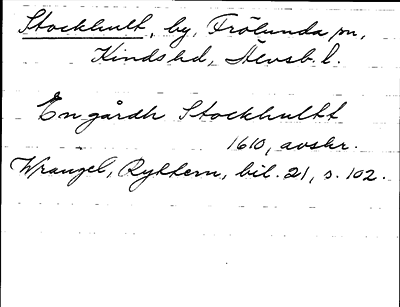 Stockhult, by, Frölunda sn,
Kinds hd, Älvsb. l.
En gårdh Stockhultt
1610, avskr.
Wrangel, Ryttern, bil. 21, s. 102.